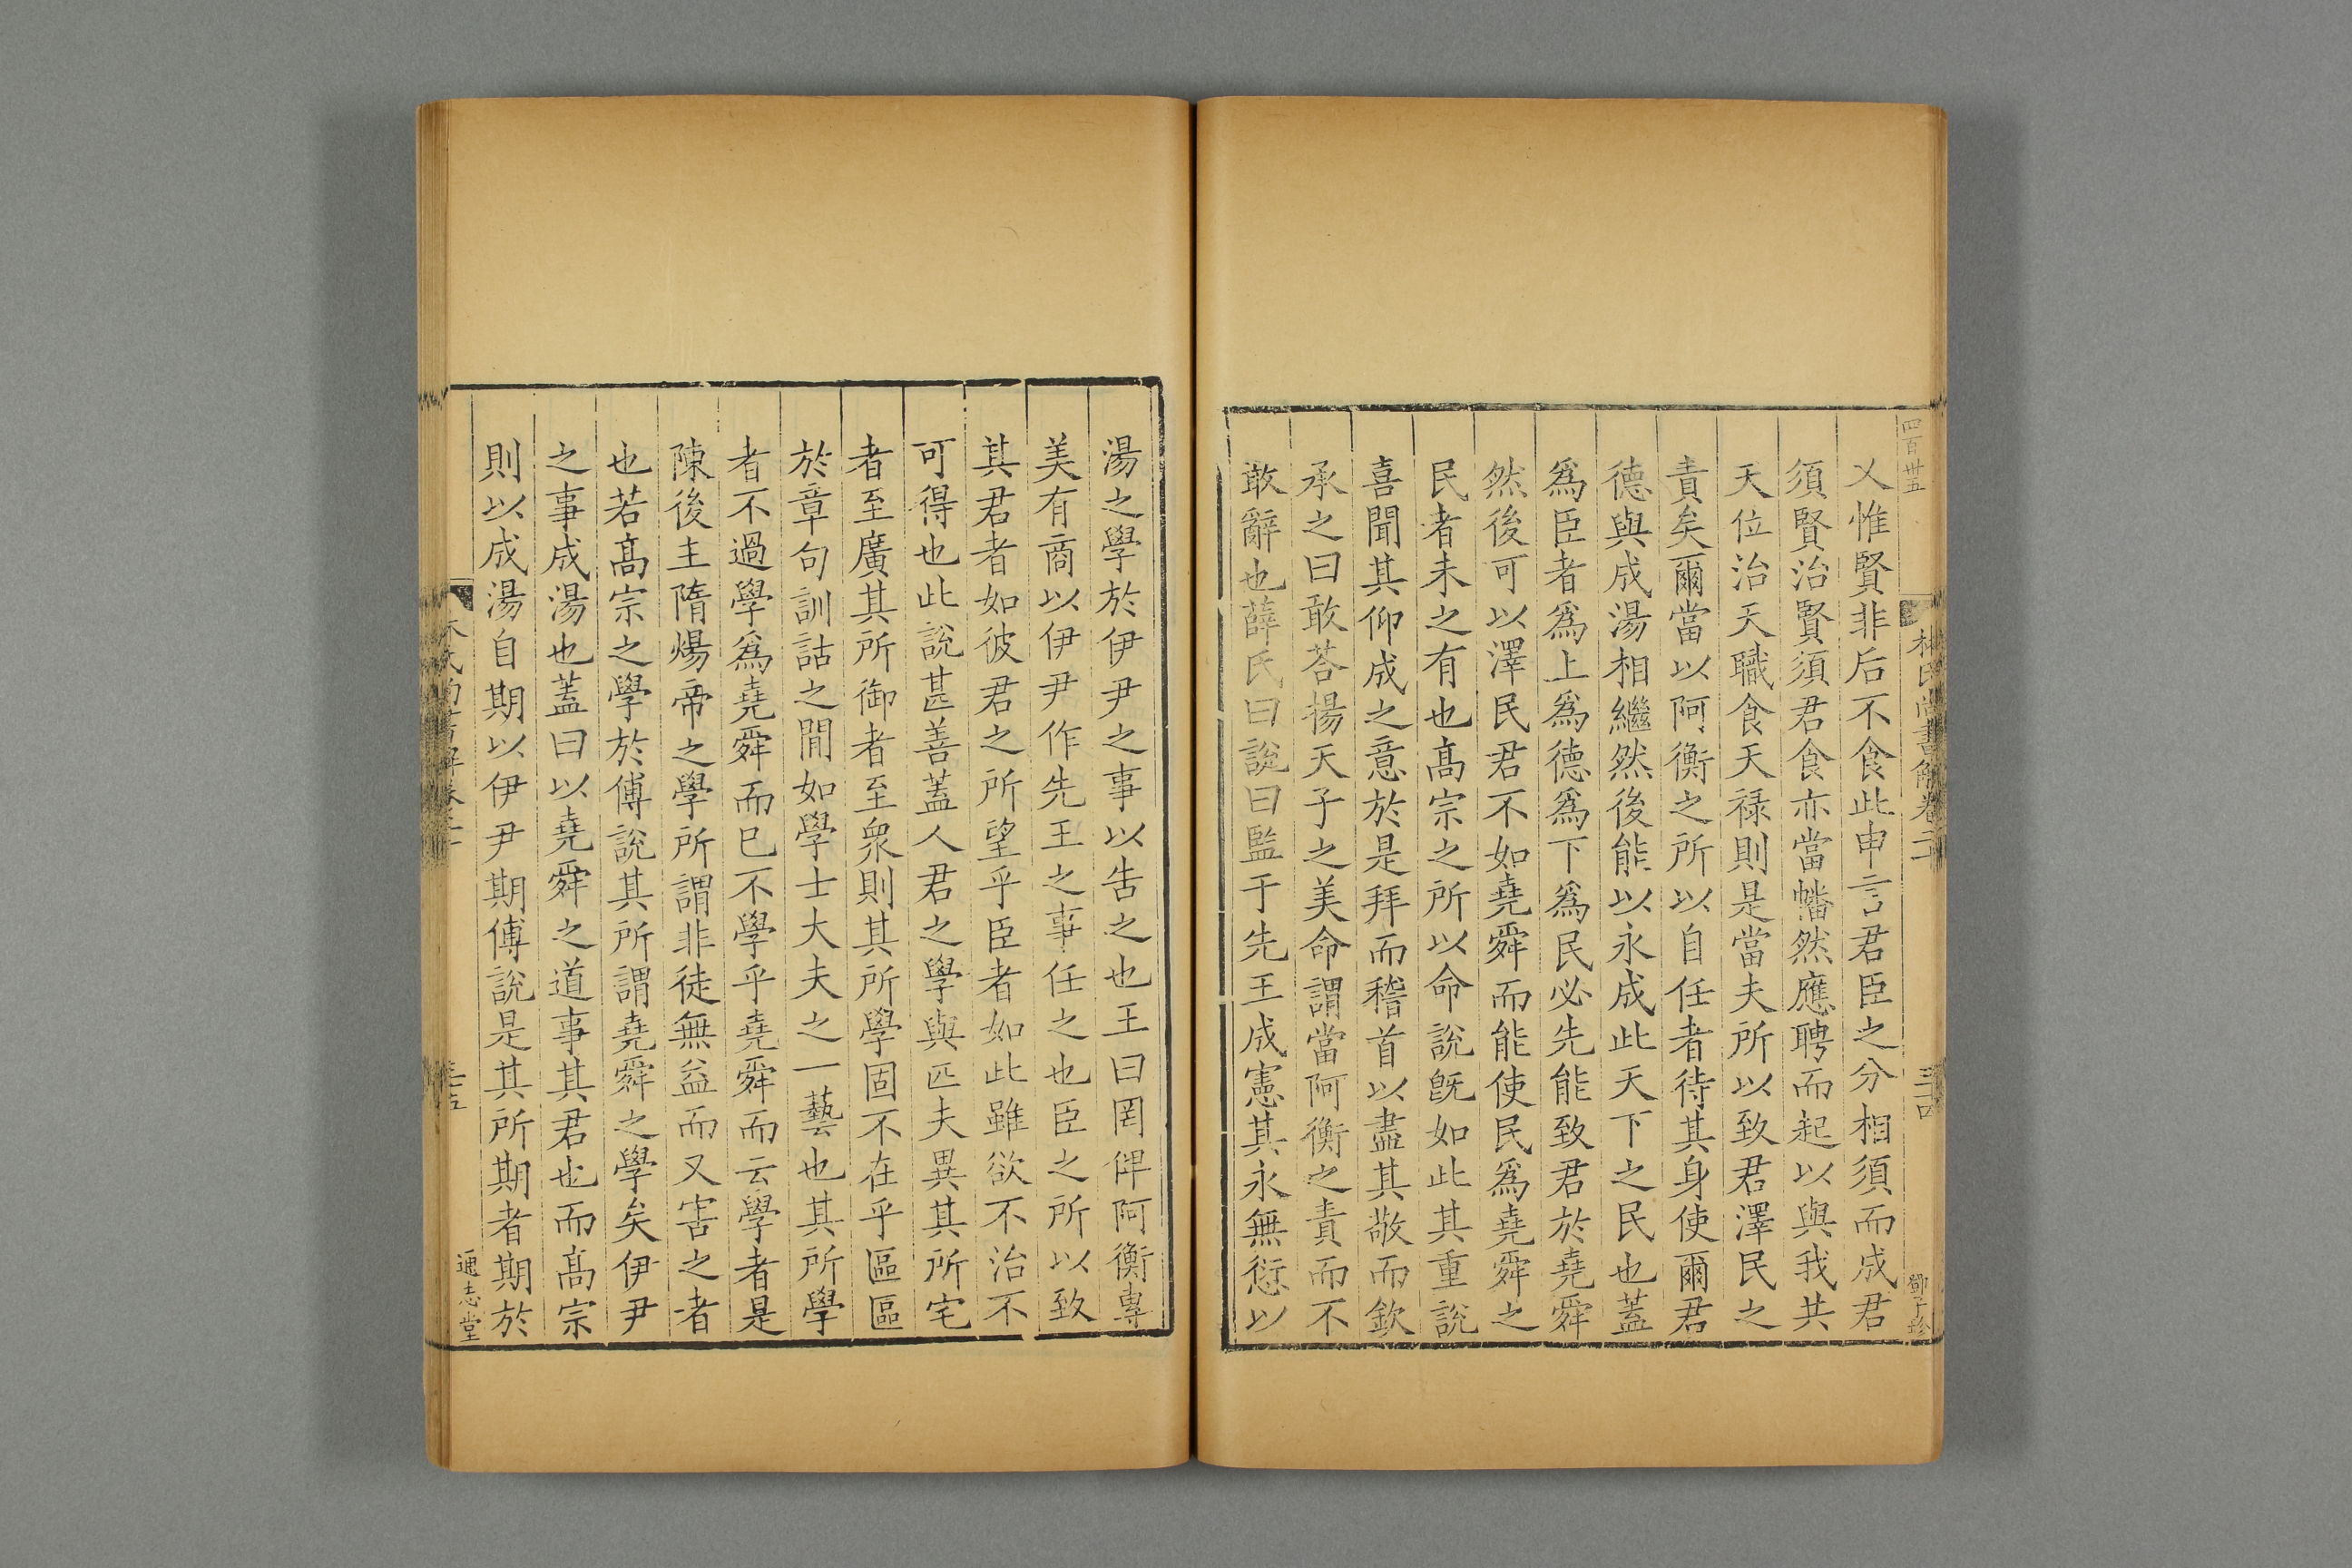 四百卅五
林氏尚書解卷二十
三十四
鄧子珍
乂惟賢非后不食此申言君臣之分相須而成君
須賢治賢須君食亦當幡然應聘而起以與我共
天位治天職食天祿則是當夫所以致君澤民之
責矣爾當以阿衡之所以自任者待其身使爾君
德與成湯相繼然後能以永成此天下之民也蓋
爲臣者爲上爲德爲下爲民必先能致君於堯舜
然後可以澤民君不如堯舜而能使民爲堯舜之
民者未之有也髙宗之所以命說旣如此其重說
喜聞其仰成之意於是拜而稽首以盡其敬而欽
承之曰敢荅揚天子之美命謂當阿衡之責而不
敢辭也薛氏曰說曰監于先王成憲其永無愆以
湯之學於伊尹之事以告之也王曰罔俾阿衡專
美有商以伊尹作先王之事任之也臣之所以致
其君者如彼君之所望乎臣者如此雖欲不治不
可得也此說甚善蓋人君之學與匹夫異其所宅
者至廣其所御者至衆則其所學固不在乎區區
於章句訓詁之閒如學士大夫之一藝也其所學
者不過學爲堯舜而已不學乎堯舜而云學者是
陳後主隋煬帝之學所謂非徒無益而又害之者
也若髙宗之學於傅說其所謂堯舜之學矣伊尹
之事成湯也蓋曰以堯舜之道事其君也而髙宗
則以成湯自期以伊尹期傅說是其所期者期於
通志堂